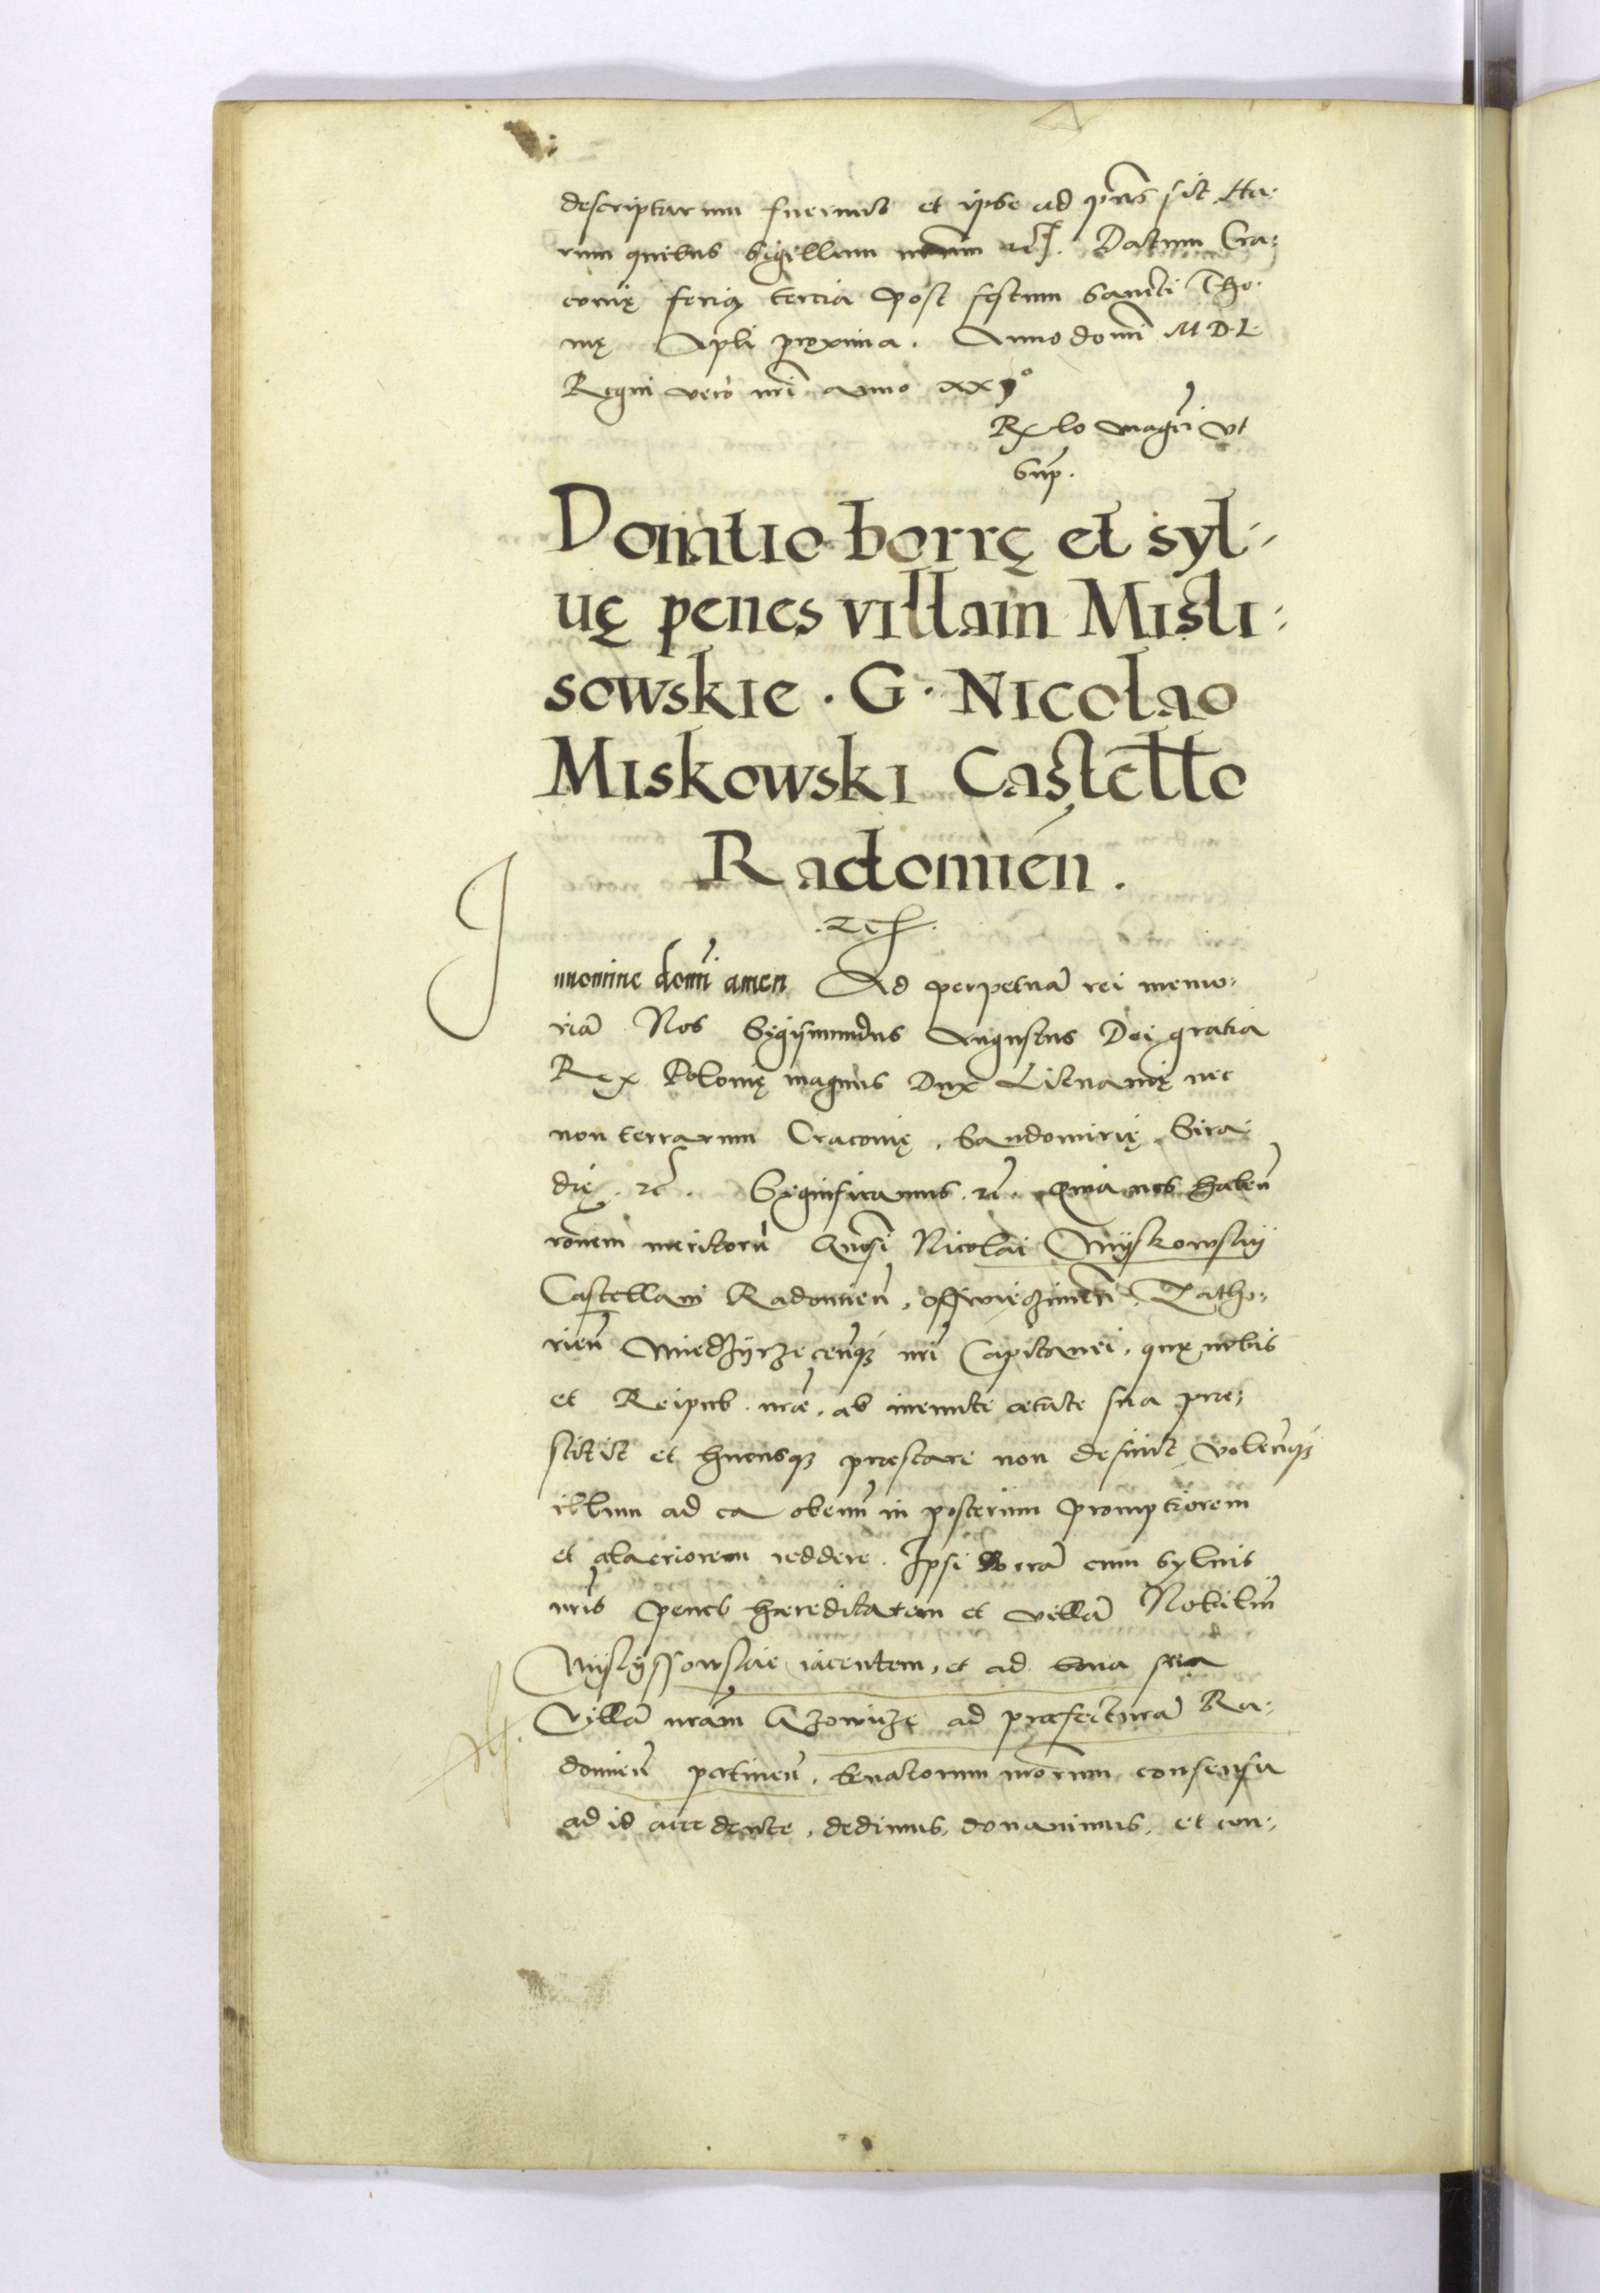 descriptarum fuerunt et ipse ad pñs sit Ha-
rum quibus Sigillum nrum etc. Datum Cra-
covię feria tercia post festum Sancti Tho-
mę Apli proxima. Anno domi M.D.L
Regni vero nri anno xxj°
Rlo magci ut
sup.
Donatio borrę et syl-
uę penes villam Misli-
sowskie. G. Nicolao
Miskowski Castello
Radomień.
etc.
In nomine domi amen Ad perpetuā rei memo-
riā Nos Sigismundus Augustus Dei gratia
Rex Polonię magnus Dux Lituanię nec
non terrarum Cracovię, Sandomirię, Sira-
dię etc. Significamus etc. Quia nos habeñ
rōnem meritorū Gnosi Nicolai Myskowskij
Castellani Radomieñ, Osswięzimeñ Zatho-
rieñ Miedzyrzeceñque nri Capitanei, quę nobis
et Reipub. nrae, ab ineunte aetate sua prae-
stitit et hucusque praestare non desinit, volenque
illum ad ea obeuñ in posterum promptiorem
et alacriorem reddere. Ipsi Borrā cum Sylvis
nris penes haereditatem et villā Nobiliū
Myslyssowskie iacentem, et ad bona sua
Villā nram ad praefecturā Ra-
domieñ pertineñ, Senatorum nrorum consensu
ad id accedente, dedimus, donavimus, et con-